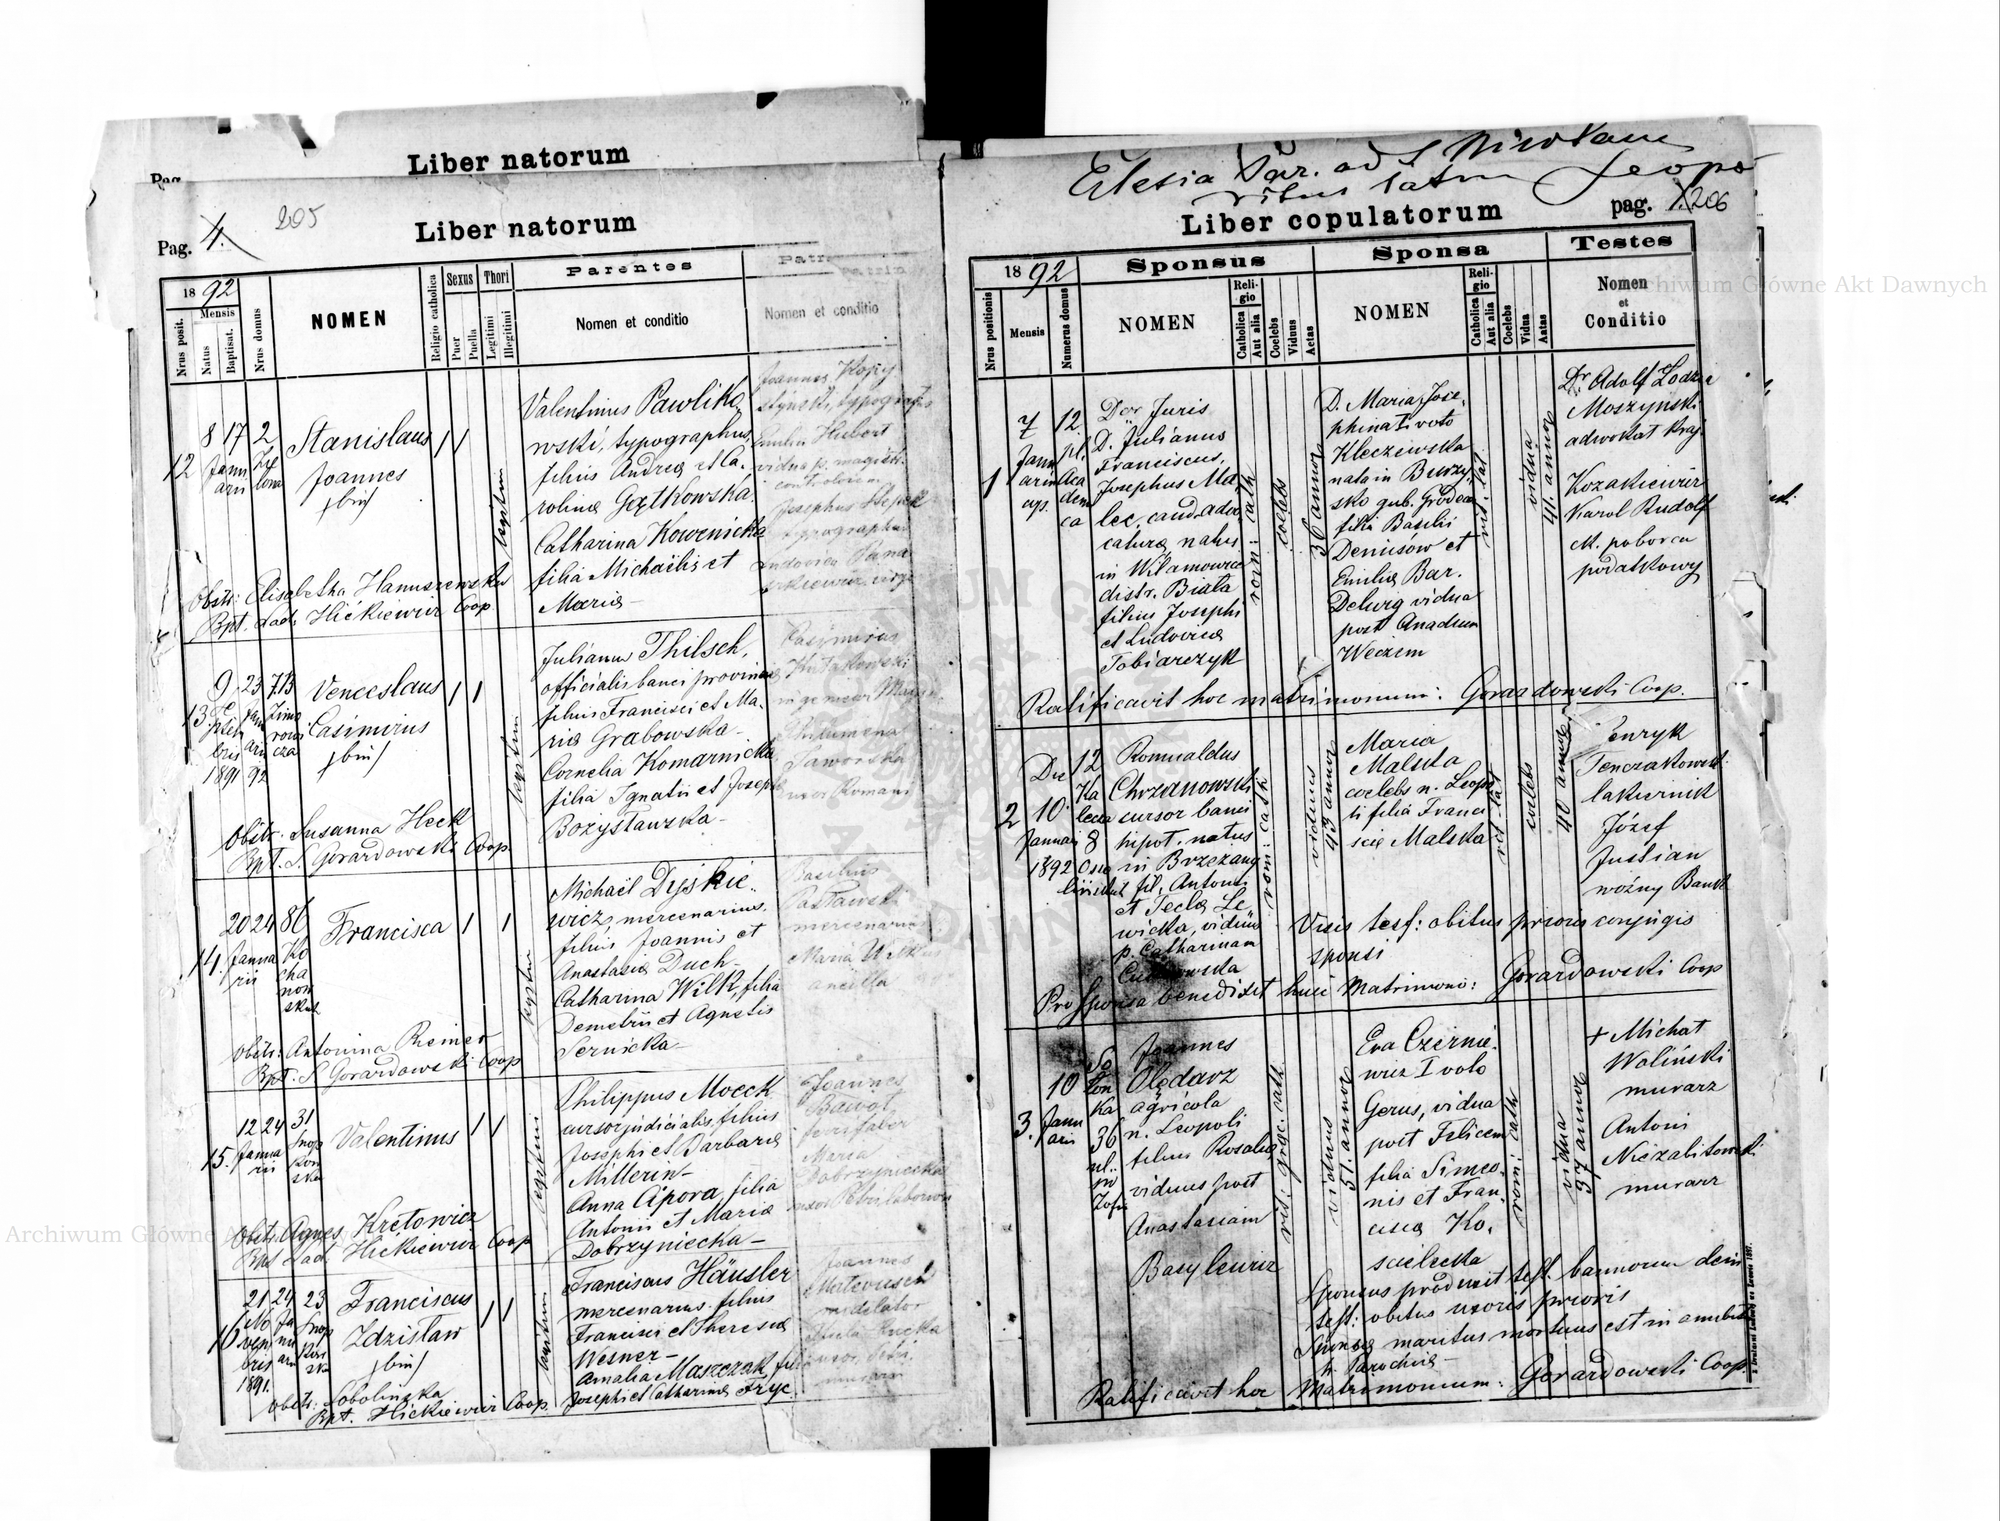 Liber natorum
Pag.
205
Liber natorum
Pag. 4.
1892
Mensis
Nrus posit.
Natus
Baptisat.
Nrus domus
NOMEN
Religio catholica
Sexus
Puer
Puella
Thori
Legitimi
Illegitimi
Parentes
Nomen et conditio
Patrini
Nomen et conditio
12
8 17 2
Januarii
Stanislaus
Joannes
/bin/
Valentinus Pawliko
wski, typographus,
filius Andreæ et Ca-
rolinæ Gątkowska.
Catharina Kowenicka
filia Michaëlis et
Mariæ
Joannes Kopy
styński, typograf
Emilia Hubert
vidua p. magistr.
controlorem
Josephus
typographus
Obstr: Elisabetha Hanuszewska
Bpt. Lad. Hićkiewicz Coop.
13.
9 23 713
Septem
bris
1891 92
Venceslaus
Casimirus
/bin/
Julianus Thilsch,
officialis banci provinciæ
filius Francisci et Ma-
riæ Grabowska-
Cornelia Komarnicka
filia Ignatii et Josephæ
Bozystawska-
Casimirus
Philumena
Jaworska
uxor Romani
Obstr. Susanna Heck
Bpt. S. Gorardowski Coop.
14.
20 24 86
Janua
rii
Ko
cha
now
skiet
Francisca
Michaël Dyskie-
wicz, mercenarius,
filius Joannis et
Anastasiæ Duch-
Catharina Wilk, filia
Demetrii et Agnetis
Sernicka-
Basilius
Pastawski
mercenarius
Maria
ancilla
Obstr. Antonina Riemer
Bpt. S Gorardowski Coop
15.
12 24 31
Janua
rii
Snop
kow
ska
Valentinus
Philippus Moeck
cursor judicialis, filius
Josephi et Barbaræ
Millerin-
Anna Cápora, filia
Antonii et Mariæ
Dobrzyniecka-
Joannes
Bawoł
ferrifaber
Maria
Dobrzyniecka
Obstr. Agnes Krętowicz
Bpt Lad. Hićkiewicz Coop
16
21 24 23
Novem
bris
1891.
Ja
nu
arii
Snop
kow
ska
Franciscus
Zdzisław
/bin/
Franciscus Häusler
mercenarius filius
Francisci et Theresiæ
Wesner-
Amalia Maszczak filia
Josephi et Catharinæ Fryc.
Joannes
Mateusch
modelator
Obstr: Sobolińska
Bpt. Hićkiewicz Coop.
Eclesia Par. ad S Nicolaum
ritus latin Leopo
Liber copulatorum
pag. 1. 206
1892
Nrus positionis
Mensis
Numerus domus
Sponsus
NOMEN
Religio
Catholica
Aut alia
Coelebs
Viduus
Aetas
Sponsa
NOMEN
Religio
Catholica
Aut alia
Coelebs
Vidua
Aetas
Testes
Nomen
et
Conditio
1
7
Janu
arii
12.
pl.
Aca
dem
ca
Dor Juris
D. Julianus
Franciscus,
Josephus Ma
lec, cand. advo
caturæ, natus
in Wilamowice
distr. Biała
filius Josephi
et Ludovicæ
Tobiarczyk
rom: cath
coelebs
36 annor
D. Maria Jose-
phina I voto
Kleczewska
nata in Burzy-
sko gub. Grodea
filia Basilii
Denisów et
Emiliæ Bar.
Delwig vidua
post Anadeum
Weczem
rit: lat.
vidua
41. annor
Dr Adolf Łodzia
Moszyński
adwokat kraj.
Kozakiewicz
Karol Rudolf
M. poborca
podatkowy
Ratificavit hoc matrimonium: Gorardowski Coop.
2
Die
10.
Januarii
1892
12
Ka
lecza
8
Romualdus
Chrzanowski
cursor banci
hipot. natus
in Brzezany
fil. Antonii
et Teclæ Le-
wicka, viduus
p. Catharinam
rom: cath
viduus
43 annor
Maria
Malska
coelebs n. Leopo
li filia Franci
scæ Malska
rit-lat
coelebs
40 annor
Henryk
Tenczakowski
lakiernik
Józef
Justian
woźny Bank
Visis test: obitus prioris conjugis
sponsi
Pro sponsa benedixit huic Matrimonio: Gorardowski Coop
3.
10
Janu
arii
So
łon
ka
36
ul.
św
Zofii
Joannes
Olędarz
agricola
n. Leopoli
filius Rosaliæ,
viduus post
Anastasiam
Basylewicz
rit: græc. cath.
viduus
51. annor
Eva Czernie-
wicz I voto
Gerus, vidua
post Felicem
filia Simeo-
nis et Fran-
ciscæ Ko-
scielecka
rom: cath
vidua
37 annor
+ Michał
Woliński
murarz
Antoni
Niezabitowski
murarz
Sponsus produxit test. bannorum dein
test: obitus uxoris prioris
Sponsæ maritus mortuus est in ambitu
h. Parochiæ-
Ratificavit hoc Matrimonium: Gorardowski Coop.
Archiwum Główne Akt Dawnych
Archiwum Główne Akt Dawnych